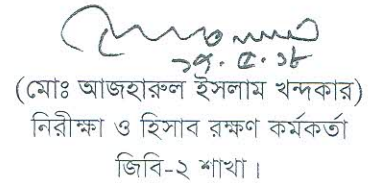 ১৭.৫.১৮
(মোঃ আজহারুল ইসলাম খন্দকার)
নিরীক্ষা ও হিসাব রক্ষণ কর্মকর্তা
জিবি-২ শাখা।